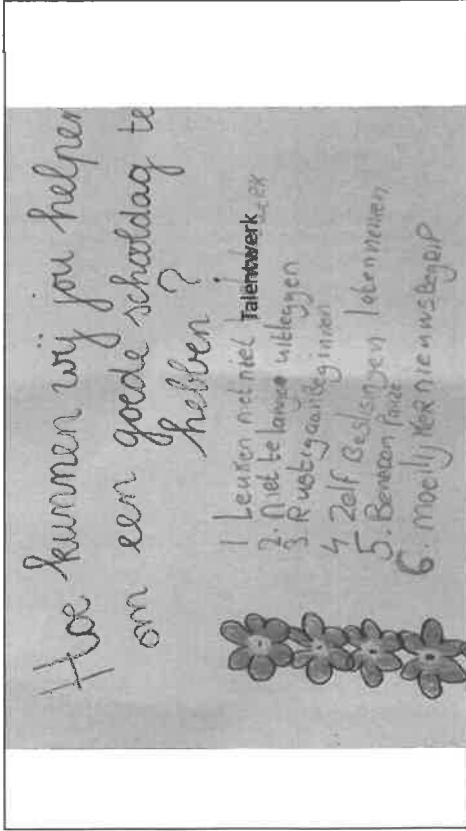 Hoe kunnen wij jou helpen
om een goede schooldag te
hebben?
1 Leuken
Talentwerk
2. niet te langen uitleggen
3. Rustig aan Beginnen
4 Zelf Beslisingen laten nemen
5.
6. moeilijker nieuwsBegRiP